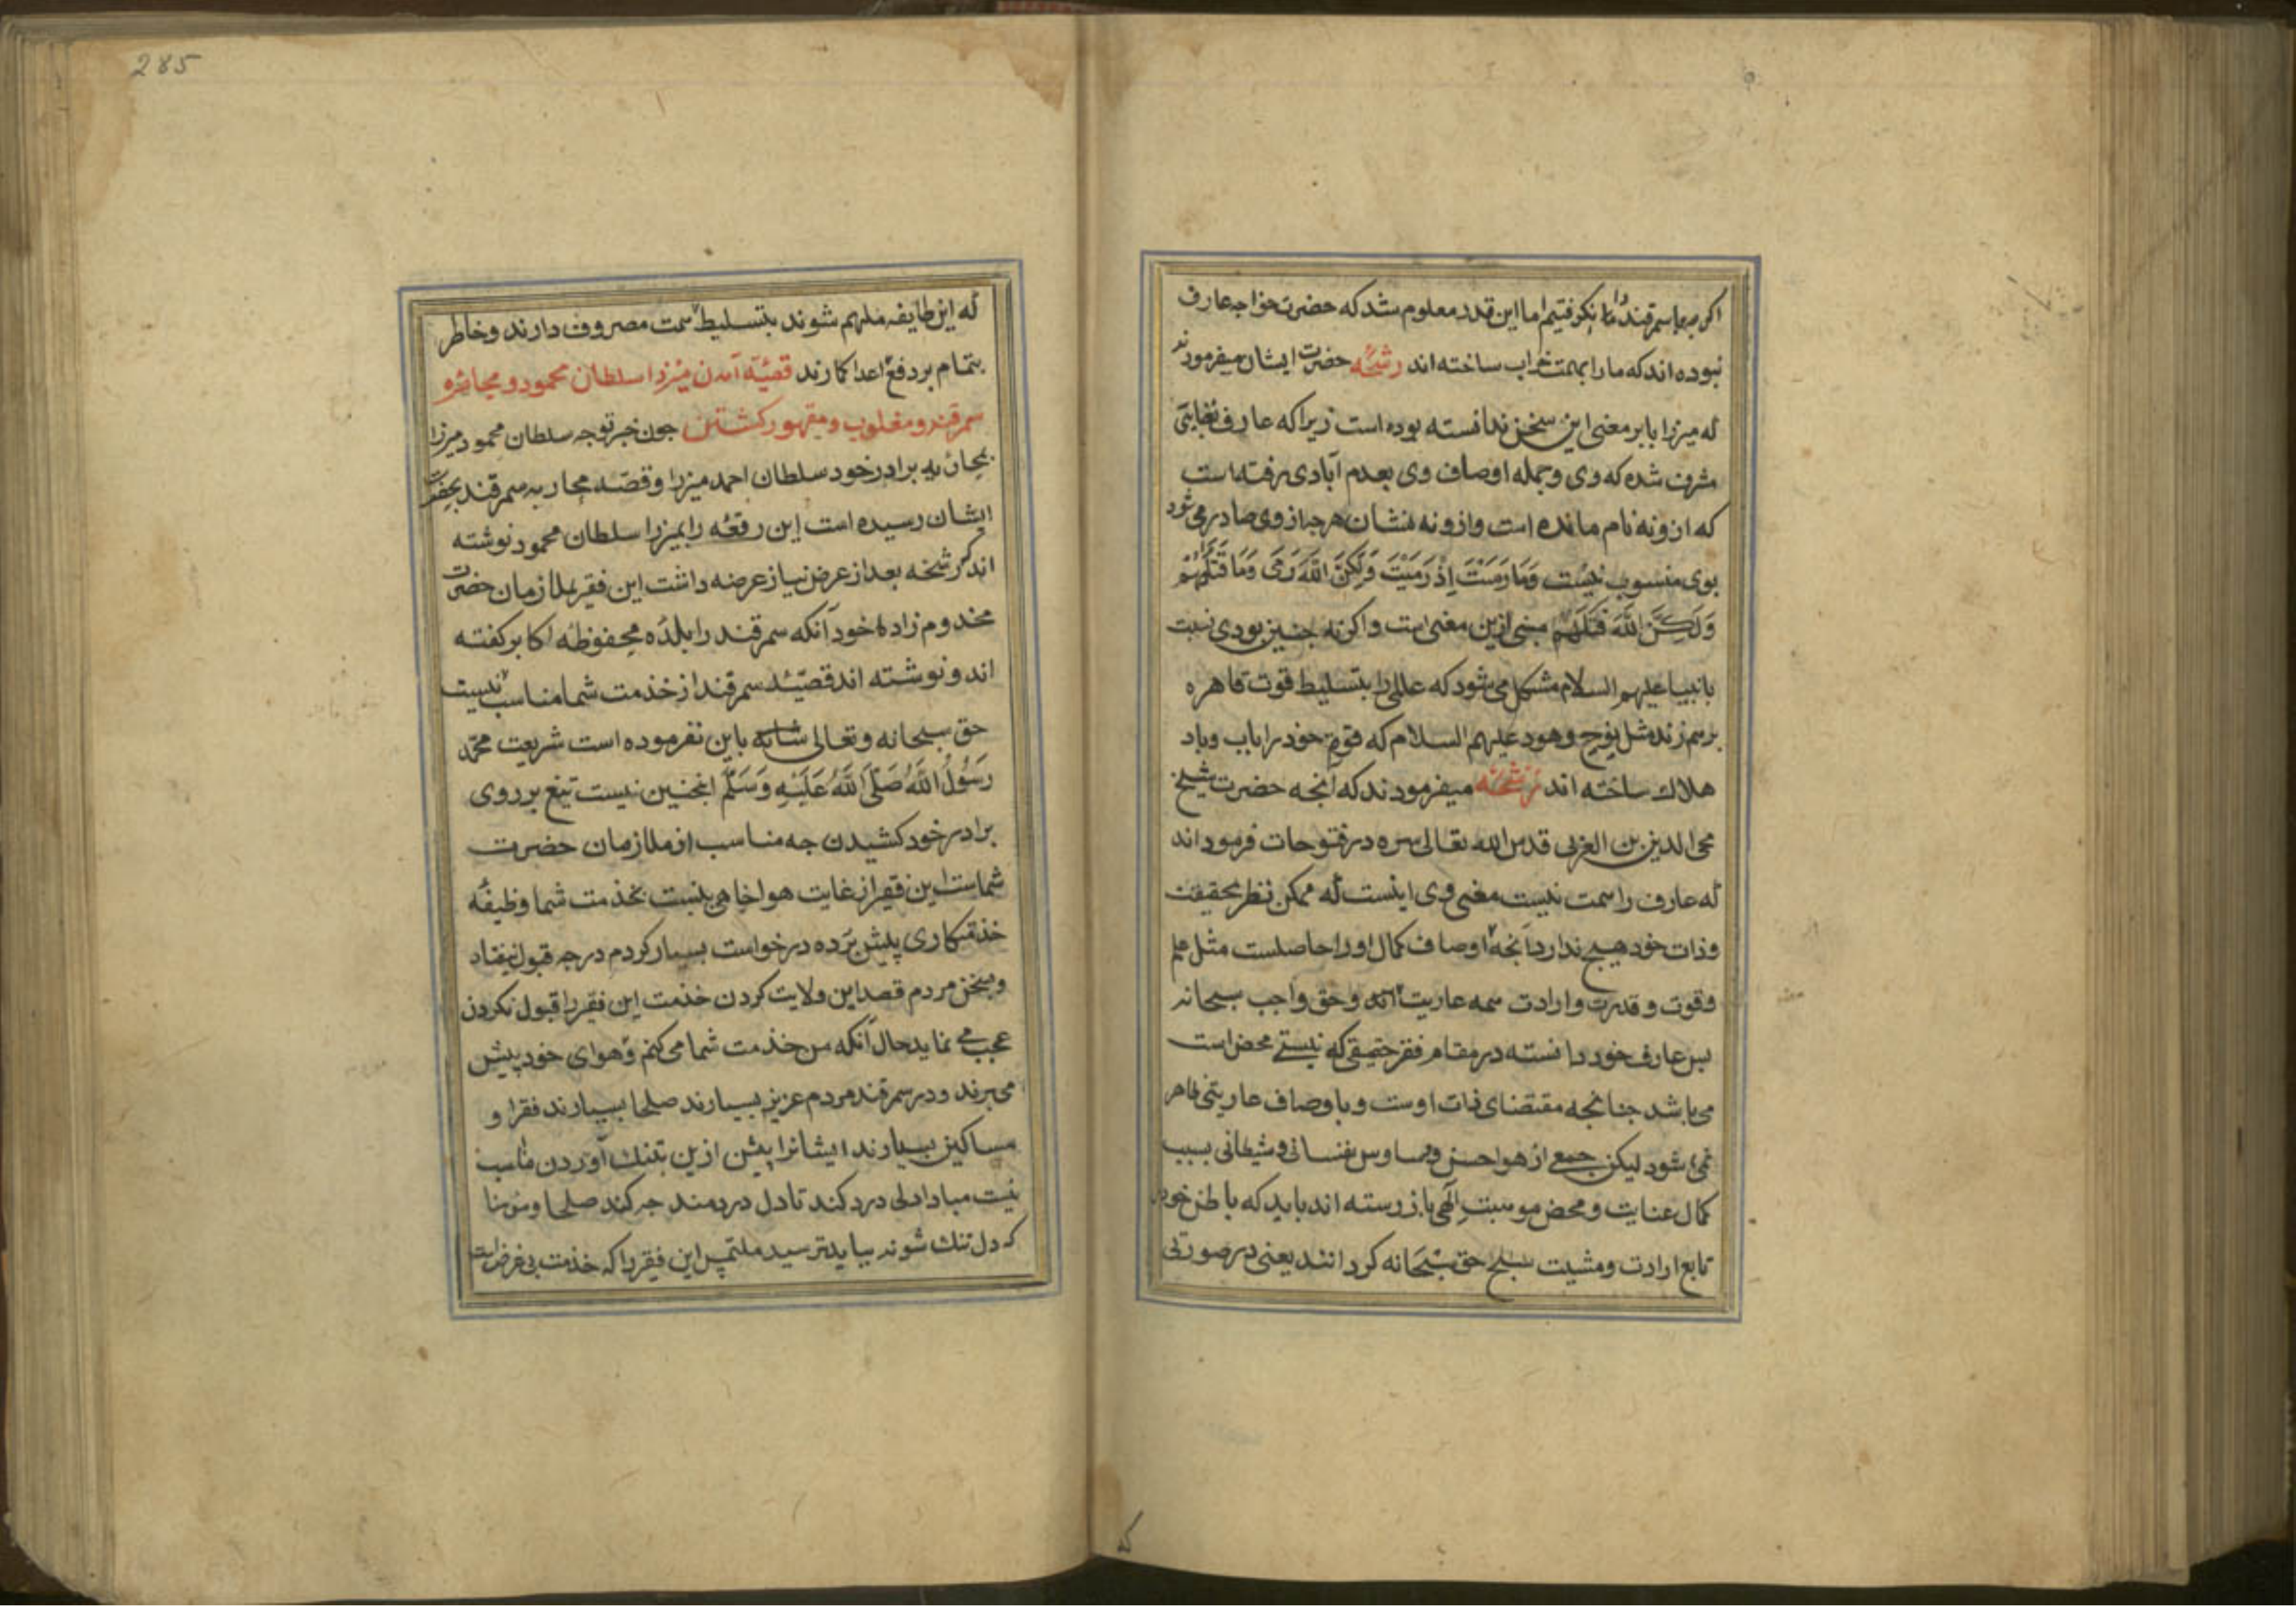 اکرچه ما سمرقند را نکرفتیم اما این قدر معلوم شد که حضرت خواجه عارف
نبوده اند که ما را بهمت خراب ساخته اند رشحه حضرت ایشان میفرمودند
که میرزا بابر معنی این سخن ندانسته بوده است زیرا که عارف بغایتی
مشرف شده که وی و جمله اوصاف وی بعدم آبادی رفته است
که ازو نه نام مانده است و ازو نه نشان هرچه از وی صادر می شود
بوی منسوب نیست وَمَا رَمَیْتَ اِذْ رَمَیْتَ وَلَکِنَّ اللّٰهَ رَمَی وَمَا قَتَلْتُمُوْهُمْ
وَلَکِنَّ اللّٰهَ قَتَلَهُمْ مبنی ازین معنی است و اکر نه چنین بودی نسبت
بانبیا علیهم السلام مشکل می شود که عالمی را بتسلیط قوت قاهره
برهم زند مثل نوح و هود علیهم السلام که قوم خود را باب و باد
هلاک ساخته اند رشحه میفرمودند که آنچه حضرت شیخ
محی الدین بن العربی قدس الله تعالی سره در فتوحات فرموده اند
که عارف را همت نیست معنی وی اینست که ممکن نظر بحقیقت
و ذات خود هیچ ندارد آنچه اوصاف کمال او را حاصلست مثل علم
و قوت و قدرت و ارادت همه عاریت اند و حق واجب سبحانه
پس عارف خود دانسته در مقام فقر حقیقی که نیستی محض است
می باشد چنانچه مقتضای ذات اوست و باوصاف عاریتی ظاهر
نمی شود لیکن جمعی از هواجس و وساوس نفسانی و شیطانی بسبب
کمال عنایت و محض موهبت الهی باز رسته اند باید که باطن خود
تابع ارادت و مشیت حق سبحانه کردانند یعنی در صورتی
که
285
که این طایفه ملهم شوند بتسلیط همت مصروف دارند و خاطر
بتمام بر دفع اعدا کمارند قصّهٔ آمدن میرزا سلطان محمود و محاصره
سمرقند و مغلوب و مقهور کشتن چون خبر توجه سلطان محمود میرزا
بمحاربه برادر خود سلطان احمد میرزا و قصّه محاربه سمرقند بحضرت
ایشان رسیده است این رقعه را بمیرزا سلطان محمود نوشته
اند رشحه بعد از عرض نیاز عرضه داشت این فقیر بملازمان حضرت
مخدوم زاده خود آنکه سمرقند را بلده محفوظه اکابر کفته
اند و نوشته اند قصد سمرقند از خدمت شما مناسب نیست
حق سبحانه و تعالی باین نفرموده است شریعت محمّد
رَسُولُ اللّٰهُ صَلَّی اللّٰهُ عَلَیْهِ وَسَلَّمَ اینچنین نیست تیغ بر روی
برادر خود کشیدن چه مناسب از ملازمان حضرت
شماست این فقیر از غایت هواخواهی بنسبت بخدمت شما وظیفه
خدمتکاری پیش برده درخواست بسیار کردم درجه قبول نیفتاد
و بسخن مردم قصد این ولایت کردن خدمت این فقیر را قبول نکردن
عجب می نماید حال آنکه من خدمت شما می کنم و هوای خود پیش
می برند و در سمرقند مردم عزیز بسیارند صلحا بسیارند فقرا و
مساکین بسیارند ایشانرا بیش ازین بتنک آوردن مناسب
نیست مبادا دلی درد کند تا دل دردمند چه کند صلحا و مومنان
که دل تنک شوند بباید ترسید ملتمس این فقیر را که خدمت بی غرض است